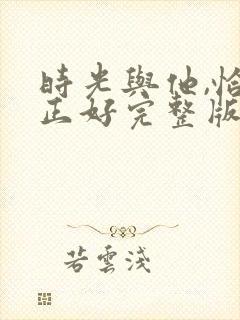 時光與他,恰
正好完整版
若雲淺